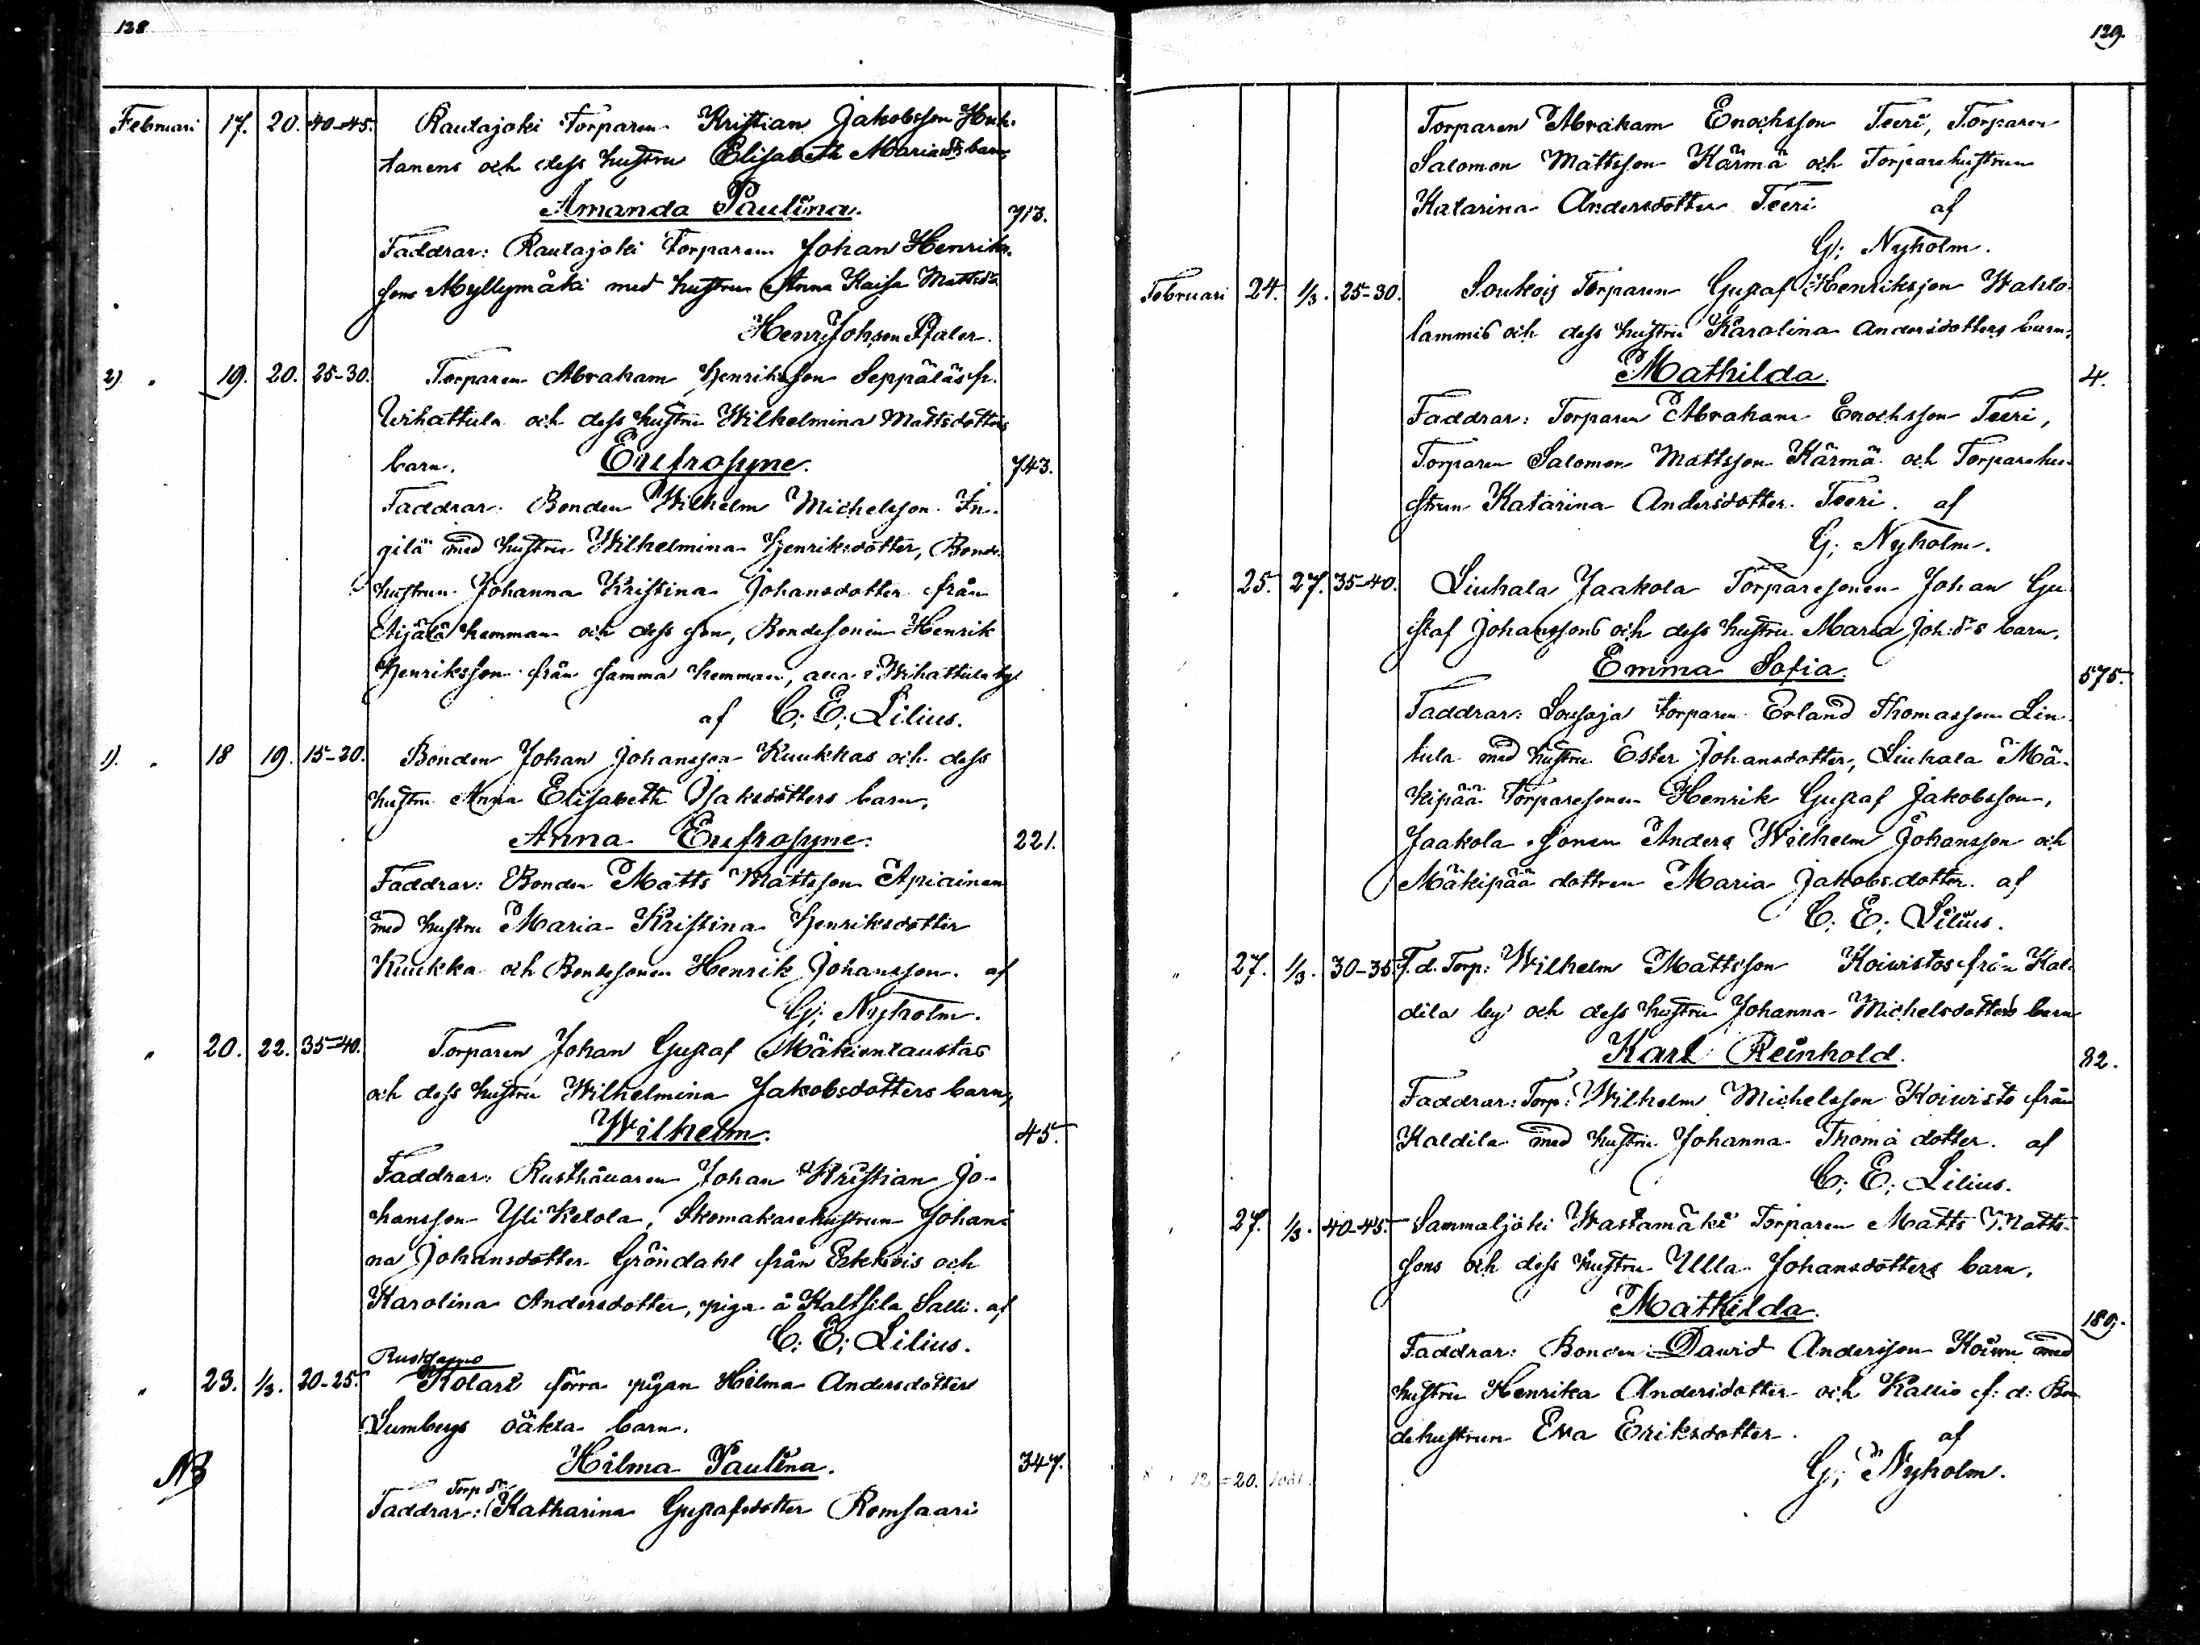 128
Februari 17. 20. 40-45. Rautajoki Torparen Kristian Jakobsson Huh-
tanens och dess hustru Elisabeth Mariæ dr barn,
Amanda Paulina. 713.
Faddrar: Rautajoki Torparen Johan Henriks-
sons Myllymäki med hustrun Anna Kaisa Mattsdr
Henr Johson Pfaler.
2) " 19. 20. 25-30. Torparen Abraham Henriksson Seppäläs fr.
Wihattula och dess hustru Wilhelmina Mattsdotters
barn. Eufrosyne. 743.
Faddrar: Bonden Wilhelm Michelsson In-
gilä med hustru Wilhelmina Henriksdotter, Bonde-
hustrun Johanna Kristina Johansdotter från
Äijälä hemman och dess son, Bondesonen Henrik
Henriksson från samma hemman, alla i Wihattula by
af C: E: Lilius.
1). " 18 19. 15-20. Bonden Johan Johansson Kuukkas och dess
hustru Anna Elisabeth Isaksdotters barn,
Anna Eufrosyne. 221.
Faddrar: Bonden Matts Mattsson Apiainen
med hustru Maria Kristina Henriksdotter
Kuukka och Bondesonen Henrik Johansson. af
G; Nyholm.
" 20. 22. 35-40. Torparen Johan Gustaf Mäkientaustas
och dess hustru Wilhelmina Jakobsdotters barn,
Wilhelm. 45.
Faddrar: Rusthållaren Johan Kristian Jo-
hansson Yli Ketola, Skomakarehustrun Johan-
na Johansdotter Gröndahl från Erkkois och
Karolina Andersdotter, piga å Kaltsila Salli. af
C: E: Lilius.
" 23. 1/3. 20-25. Kolari förra pigan Hilma Andersdotters
Lumbergs oäkta barn.
NB Hilma Paulina. 347.
Torp dr
Faddrar: Katharina Gustafsdotter Romsaari
129.
Torparen Abraham Enochsson Teeri, Torparen
Salomon Mattsson Kärmä och Torparehustrun
Katarina Andersdotter Teeri af
G; Nyholm.
Februari 24. 1/3. 25-30. Soukois Torparen Gustaf Henriksson Wahto-
lammis och dess hustru Karolina Andersdotters barn,
Mathilda. 4.
Faddrar: Torparen Abraham Enochsson Teeri,
Torparen Salomon Mattsson Kärmä och Torparehu-
strun Katarina Andersdotter Teeri. af
G; Nyholm.
" 25. 27. 35-40. Liuhala Jaakola Torparesonen Johan Gu-
staf Johanssons och dess hustru Maria Joh:drs barn,
Emma Sofia. 575.
Faddrar: Sousaja torparen Erland Thomasson Lin-
tula med hustru Ester Johansdotter, Liuhala Mä-
kipää Torparesonen Henrik Gustaf Jakobsson,
Jaakola sonen Anders Wilhelm Johansson och
Mäkipää dottren Maria Jakobsdotter. af
C; E; Lilius.
" 27. 1/3. 30-35. F. d. Torp: Wilhelm Mattsson Koivistos från Kal-
dila by och dess hustru Johanna Michelsdotters barn
Karl Reinhold. 82.
Faddrar: Torp: Wilhelm Michelsson Koivisto från
Kaldila med hustru Johanna Thomadotter. af
C; E; Lilius.
" 27. 1/3. 40-45. Sammaljoki Wastamäki Torparen Matts Matts-
sons och dess hustru Ulla Johansdotters barn,
Mathilda. 189.
Faddrar: Bonden David Andersson Koivu med
hustru Henrika Andersdotter och Kallio f: d: Bon-
dehustrun Eva Eriksdotter. af
G; Nyholm.